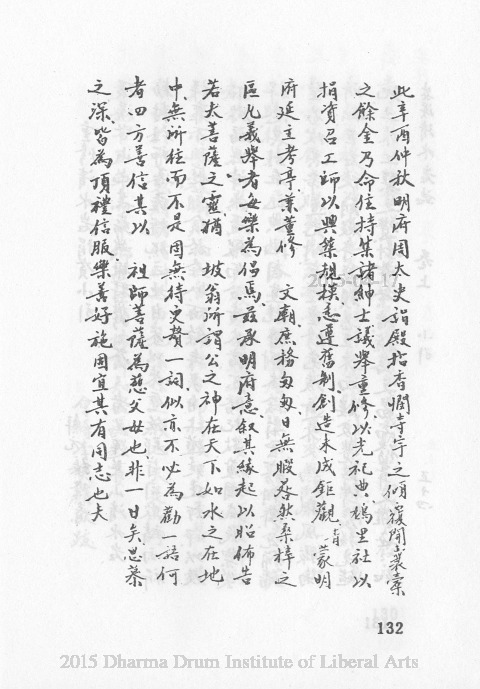 此辛酉仲秋明府周太史詣殿拈香憫寺宇之傾寢開囊橐
之餘金乃命住持集諸紳士議舉重修以光祀典鳩里社以
捐資召工師以興築規模悉遵舊制創造未成鉅觀 蒙明
府延主考亭業董修 文廟庶務匆匆日無暇晷然桑梓之
區凡義舉者每樂為倡焉茲承明府意叙其緣起以昭佈告
若夫菩薩之靈猶 坡翁所謂公之神在天下如水之在地
中無所往而不是固無待更贅一詞似亦不必為勸一語何
者四方善信其以 祖師菩薩為慈父母也非一日矣思慕
之深皆為頂禮信服樂善好施固宜其有同志也夫
132
2015 Dharma Drum Institute of Liberal Arts